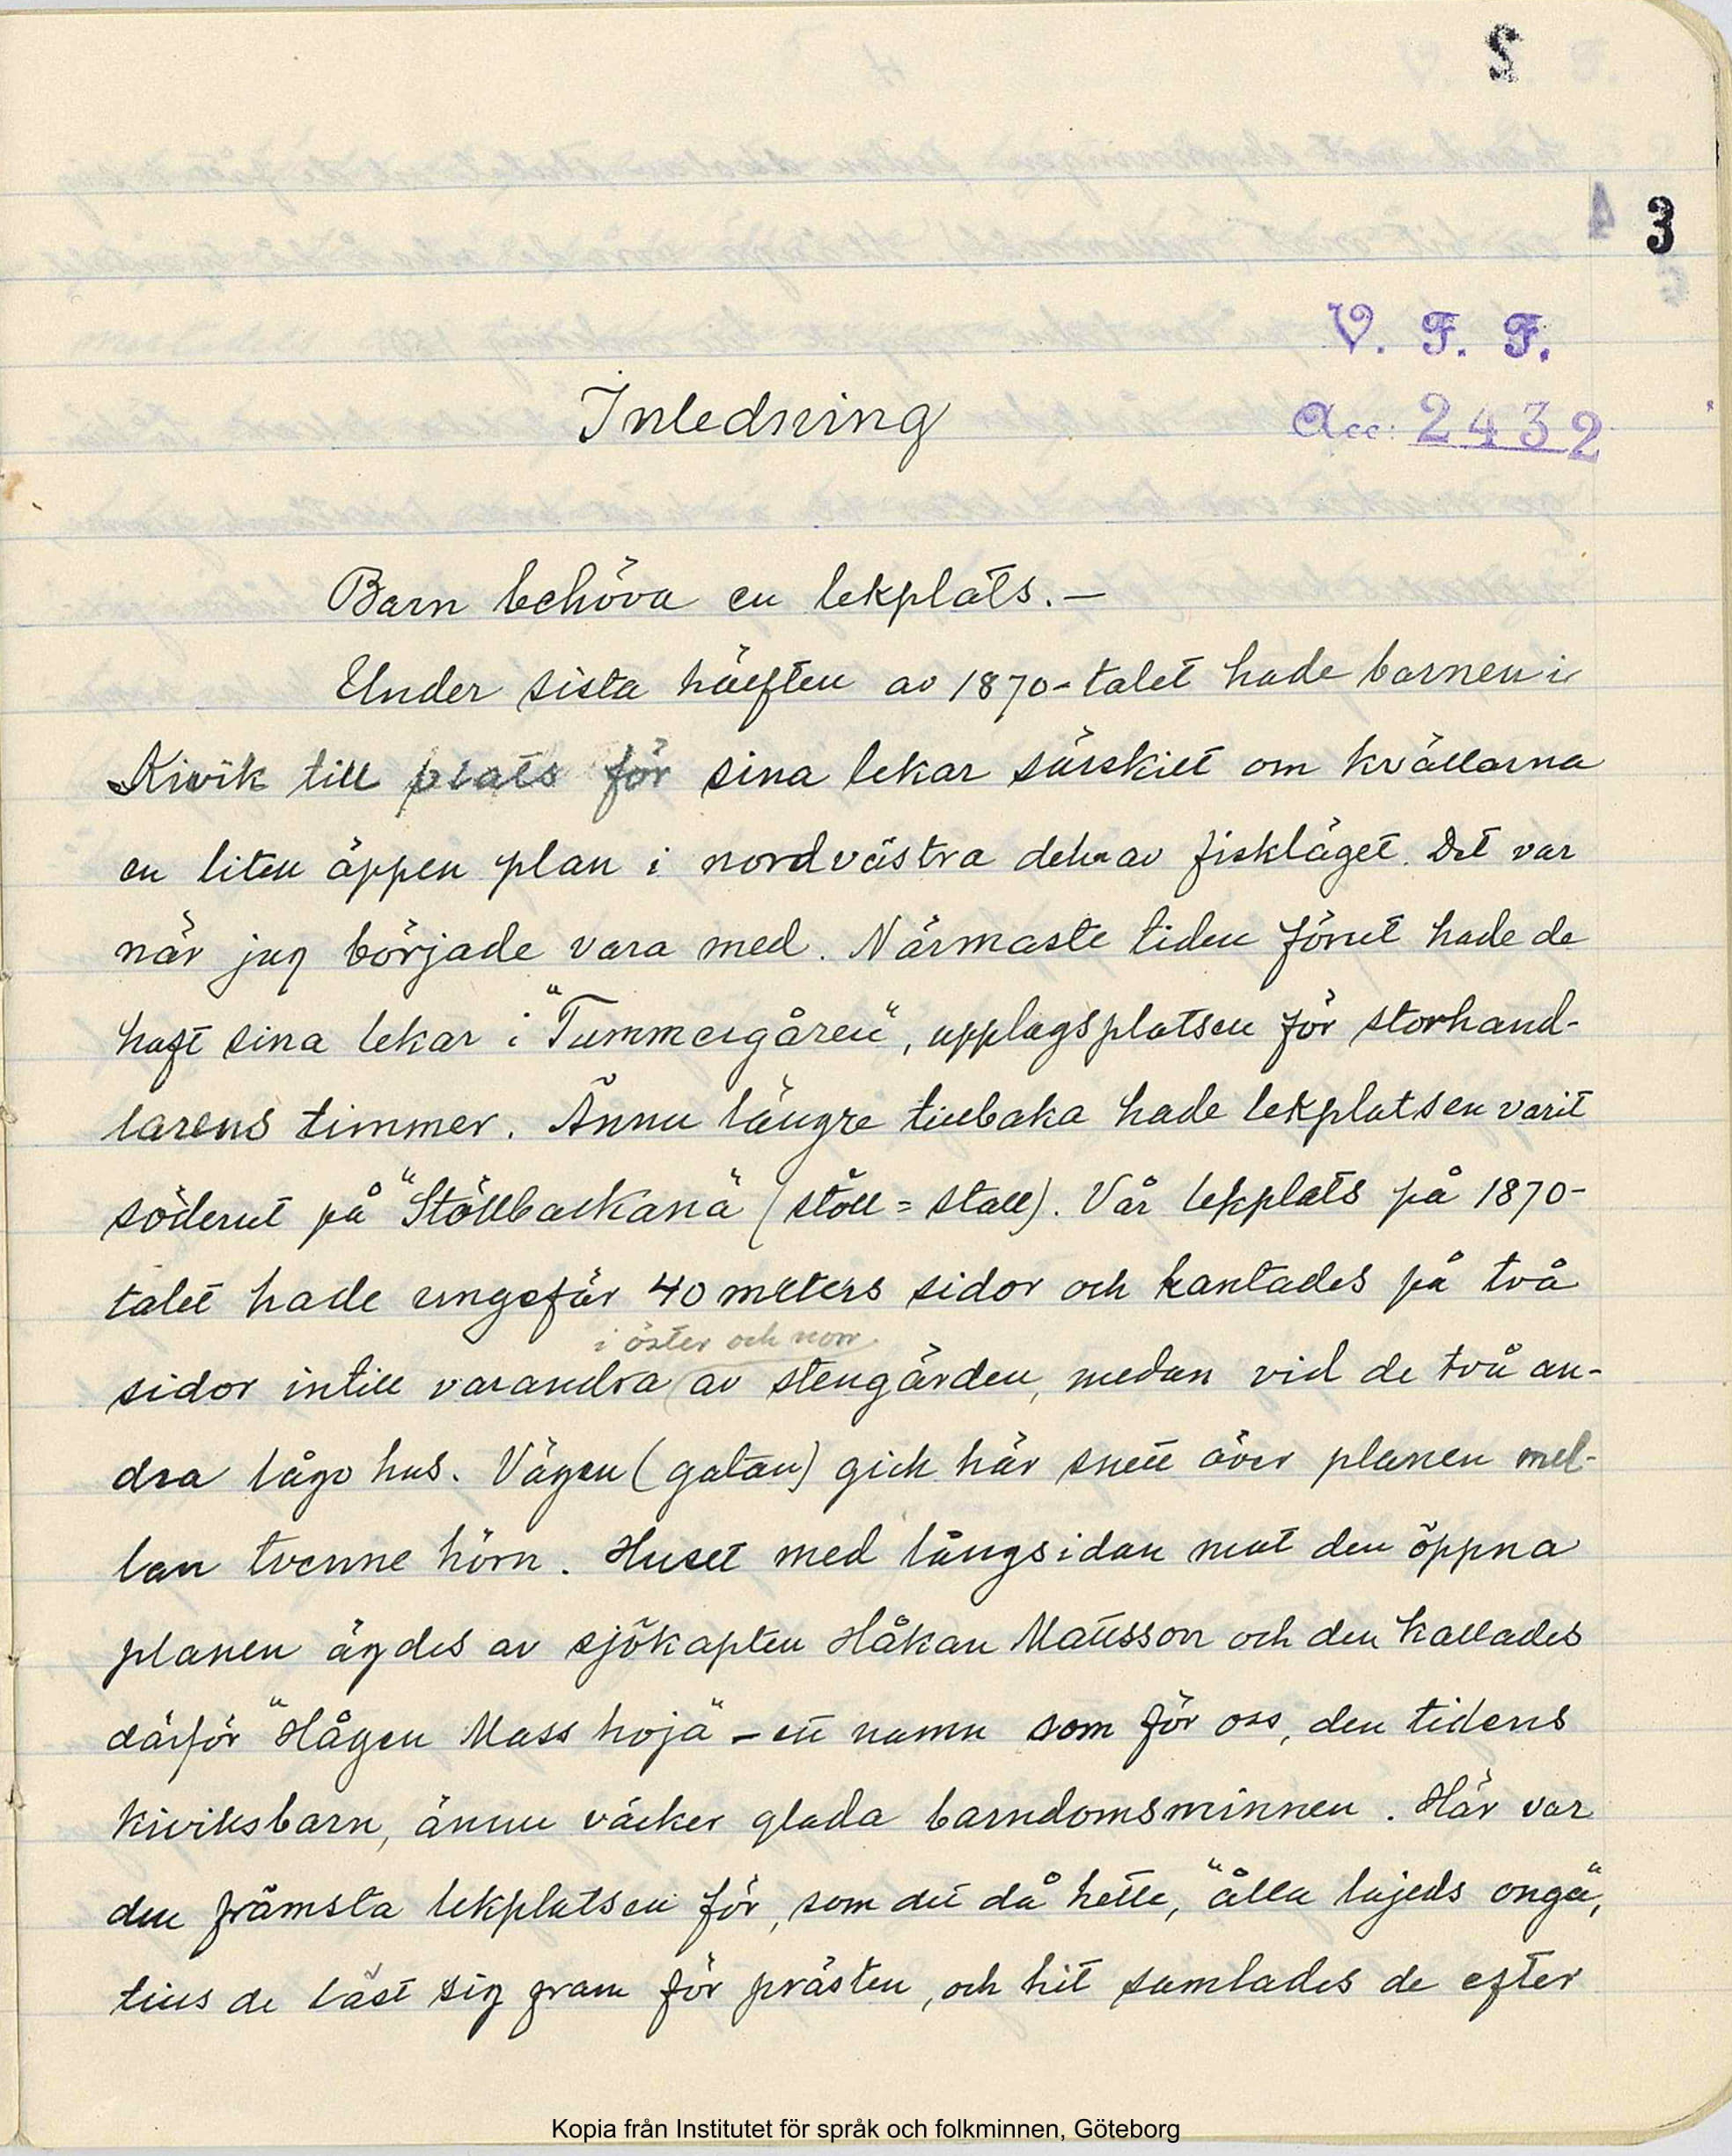 S
3
V. F. F.
Inledning
Acc: 2432
Barn behöva en lekplats. —
Under sista hälften av 1870-talet hade barnen i
Kivik till plats för sina lekar särskilt om kvällarna
en liten öppen plan i nordvästra delen av fiskläget. Det var
när jag började vara med. Närmaste tiden förut hade de
haft sina lekar i "Tummergåren", upplagsplatsen för storhand-
larens timmer. Ännu längre tillbaka hade lekplatsen varit
söderut på "Stöllbackana" (stöll = stall). Vår lekplats på 1870-
talet hade ungefär 40 meters sidor och kantades på två
i öster och norr
sidor intill varandra av stengärden, medan vid de två an-
dra lågo hus. Vägen (gatan) gick här snett över planen mel-
lan tvenne hörn. Huset med långsidan mot den öppna
planen ägdes av sjökapten Håkan Matsson och den kallades
därför "Hågen Mass hojä" – ett namn som för oss, den tidens
kiviksbarn, ännu väcker glada barndomsminnen. Här var
den främsta lekplatsen för, som det då hette, "ålla lajeds ongä",
tills de läst sig fram för prästen, och hit samlades de efter
Kopia från Institutet för språk och folkminnen, Göteborg